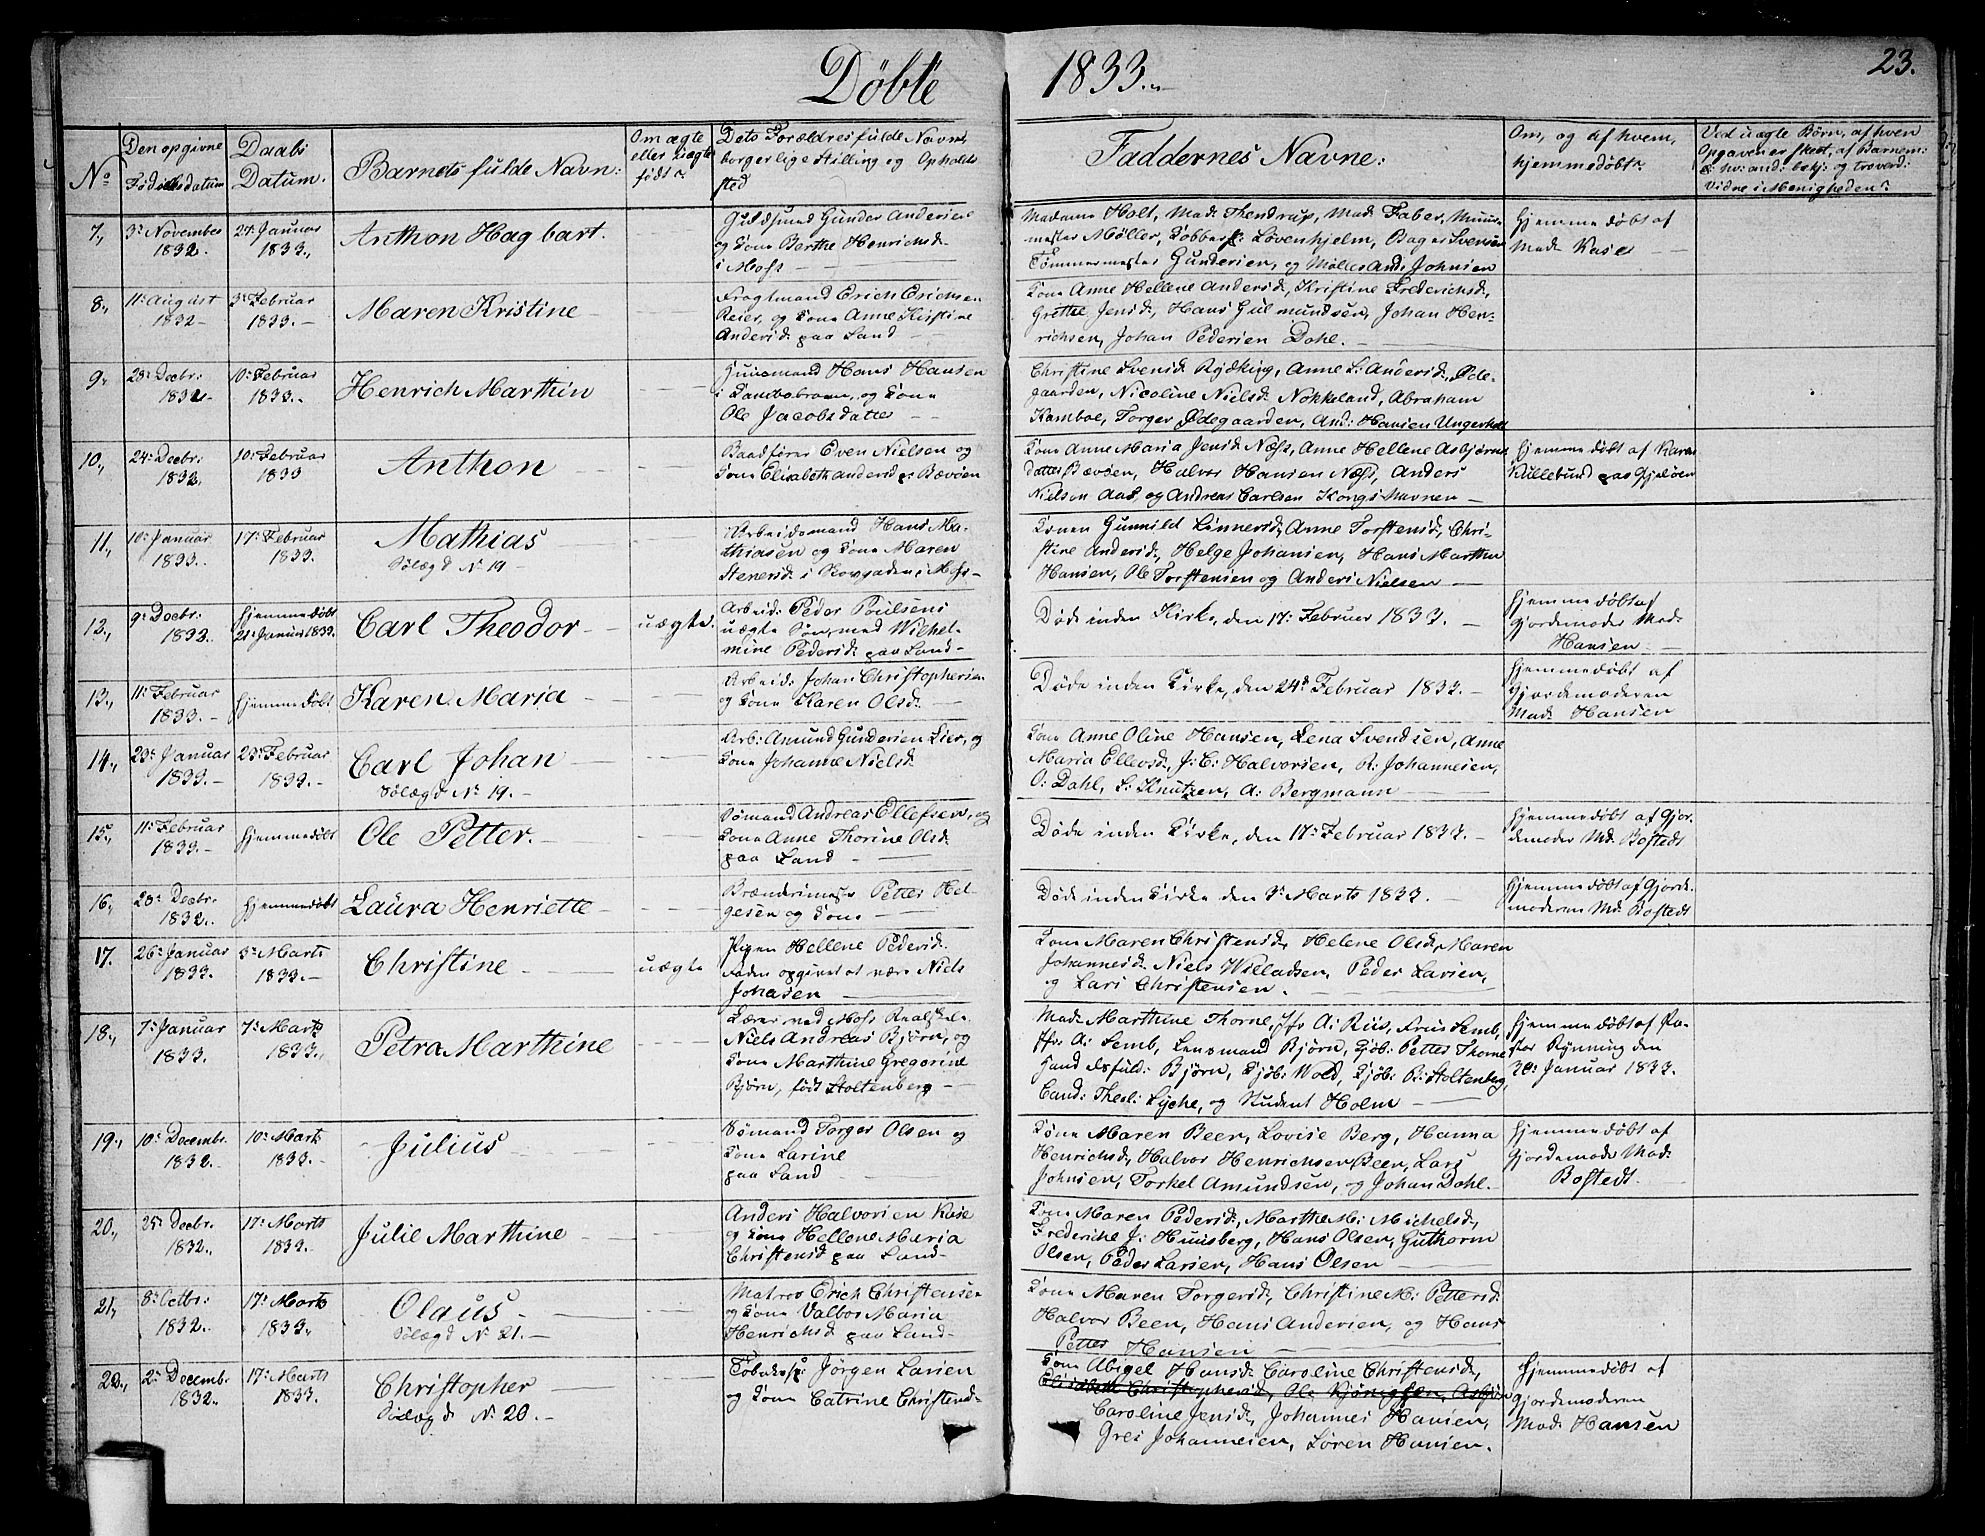 Döbte 1833.
23.
No
Den opgivne Fødselsdatum
Daabs Datum.
Barnets fulde Navn:
Om ægte eller uægte født?
Dets Forældres fulde Navne, borgerlige Stilling og Opholdssted
Faddernes Navne:
Om, og af hvem, hjemmedøbt?
Ved uægte Børn, af hven
Opgaven er skeet, af Barnem:
vidne i Menigheden?
7, 3: November 1832. 27: Januar 1833.
Anthon Hagbart.
Guldsmed Gunder Andersen
og Kone Berthe Henrichsd:
i Moss
Madame Holt, Mad: Thendrup, Mad: Faber, Muur-
mester Møller, Kobbersl: Løvenhjelm, Bager Svensen
Tømmermester Gundersen, og Møller And: Johnsen
Hjemmedøbt af
Mad: Kase
8, 11: August 1832 3: Februar 1833.
Maren Kristine
Fragtmand Erich Erichsen
Reier, og Kone Anne Kirstine
Andersd: paa Land
Kone Anne Hellene Andersd:, Kristine Frederichsd:,
Grethe Jensd:, Hans Gulmundsen, Johan Hen-
richsen, Johan Pedersen Dahl.
9, 28: Decbr: 1832 10: Februar 1833.
Henrich Marthin
Huusmand Hans Hansen
i Kambobraaten, og Kone
Ole Jacobsdatter
Christine Svensd: Rødking, Anne L: Andersd:, Øde-
gaarden, Nicoline Nielsd: Nøkkeland, Abraham
Kamboe, Torger Ødegaarden, And: Hansen Ungersholt
10, 24: Decbr: 1832. 10: Februar 1833
Anthon
Baadfører Even Nielsen og
Kone Elisabeth Andersd: p: Bævøen
Kone Anne Maria Jensd: Næss, Anne Hellene Asbjørns
datter Bævøen, Halvor Hansen Næss, Anders
Nielsen Aas, og Andreas Carlsen Kongshavnen
Hjemmedøbt af Karen
Kullebund paa Gjeløen
11, 10: Januar 1833. 17: Februar 1833.
Mathias
Sølægd No 19
Arbeidsmand Hans Ma-
thiasen og Kone Maren
Stenersd: i Skovgaden i Moss
Konen Gunnild Linnersd:, Anne Torstensd:, Chri-
stine Andersd:, Helge Johansen, Hans Marthin
Hansen, Ole Torstensen og Anders Nielsen
12, 9: Decbr: 1832. Hjemmedøbt 21: Januar 1833.
Carl Theodor
uægte.
Arbeid: Peder Poulsens
uægte Søn, med Wilhel-
mine Pedersd: paa Land
Døde inden Kirke, den 17: Februar 1833.
Hjemmedøbt af
Gjordemoder Mad:
Hansen
13, 11: Februar 1833. Hjemmedøbt
Karen Maria
Arbeid: Johan Christophersen
og Kone Karen Olsd:
Døde inden Kirke, den 24: Februar 1833.
Hjemmedøbt af
Gjordemoderen
Mad: Hansen
14, 23: Januar 1833. 23: Februar 1833.
Carl Johan
Sølægd No 19.
Arb: Amund Gundersen Lier, og
Kone Johanne Nielsd:
Kone Anne Oline Hansen, Lena Svendsen, Anne
Maria Ellevsd:, J: C: Halvorsen, R: Johannesen,
O: Dahl, L: Knutzen, A: Bergmann
15, 11: Februar 1833. Hjemmedøbt
Ole Petter.
Sømand Andreas Ellefsen, og
Kone Anne Thorine Olsd:
paa Land
Døde inden Kirke, den 17: Februar 1833.
Hjemmedøbt af Gjor-
demoder Md: Bostedt
16, 28: Decbr: 1832. Hjemmedøbt
Laura Henriette
Brænderimester Petter Hel-
gesen og Kone
Døde inden Kirke den 3: Marts 1833.
Hjemmedøbt af Gjorde-
moderen Md: Bostedt
17. 26: Januar 1833. 3: Marts 1833.
Christine
uægte
Pigen Hellene Pedersd:
Fader opgivet at være Niels
Johasen
Kone Maren Christensd:, Helene Olsd:, Maren
Johannesd:, Niels Willadsen, Peder Larsen,
og Lars Christensen.
18, 7: Januar 1833. 7: Marts 1833.
Petra Marthine
Lærer ved Moss Realskole
Niels Andreas Bjørn, og
Kone Marthine Gregorine
Bjørn, født Stoltenberg
Mad: Marthine Thorne, Jfr A: Riis, Frue Semb,
Jfr: A: Semb, Lensmand Bjørn, Kjøb: Petter Thorne
Handelsfuld: Bjørn, Kjøb: Wold, Kjøb: P: Stoltenberg,
Cand: Theol: Lyche, og Student Holm
Hjemmedøbt af Pa-
stor Rynning den
20: Januar 1833.
19, 10: Decembr. 1832. 10: Marts 1833.
Julius
Sømand Torger Olsen og
Kone Larine
paa Land
Kone Maren Beer, Lovise Berg, Hanna
Henrichsd:, Halvor Henrichsen Beer, Lars
Johnsen, Torkel Amundsen, og Johan Dahl.
Hjemmedøbt af
Gjordemoder Mad:
Bostedt.
20, 25: Decbr. 1832. 17: Marts 1833.
Julie Marthine
Anders Halvorsen Kase
og Kone Hellene Maria
Christensd: paa Land
Kone Maren Pedersd:, Marthe M: Michelsd:,
Frederiche J: Huusberg, Hans Olsen, Guthorm
Olsen, Peder Larsen, Hans Olsen
21, 8: Octbr: 1832. 17: Marts 1833.
Olaus
Sølægd No 21.
Matros Erich Christensen
og Kone Valbor Maria
Henrichsd: paa Land
Kone Maren Torgersd:, Christine M: Pettersd:
Halvor Beer, Hans Andersen, og Hans
Petter Hansen
22, 2: Decembr. 1832. 17: Marts 1833.
Christopher
Sølægd No 20.
Tobaksp: Jørgen Larsen
og Kone Catrine Christensd:
Kone Abigel Hansd: Caroline Christensd:,
Elisabeth Christophersd:, Ole
Caroline Jensd:, Johannes Hansen,
Gres Johannesen, Søren Hansen.
Hjemmedøbt af
Gjordemoderen
Mad: Hansen